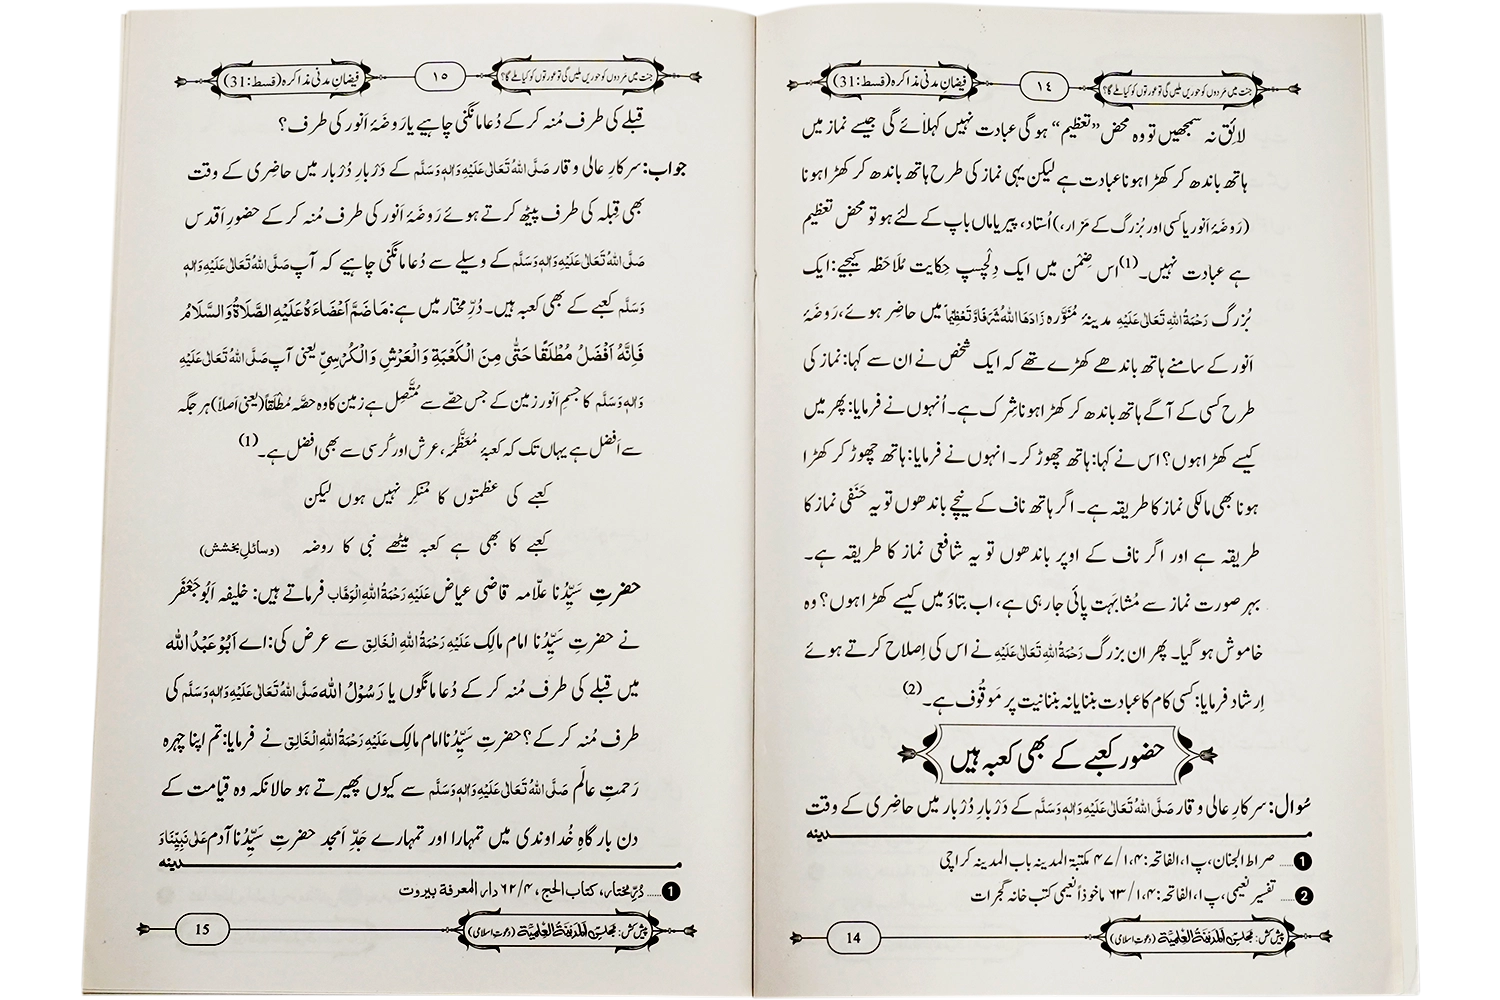 جنت میں مَردوں کو حوریں ملیں گی تو عورتوں کو کیا ملے گا؟
١٤
فیضانِ مدنی مذاکرہ (قسط:31)
لائق نہ سمجھیں تو وہ محض ”تعظیم“ ہو گی عبادت نہیں کہلائے گی جیسے نماز میں
ہاتھ باندھ کر کھڑا ہونا عبادت ہے لیکن یہی نماز کی طرح ہاتھ باندھ کر کھڑا ہونا
(رَوضَۂ اَنور یا کسی اور بُزرگ کے مَزار،) اُستاد، پیر یا ماں باپ کے لئے ہو تو محض تعظیم
ہے عبادت نہیں۔(1) اس ضِمْن میں ایک دِلْچسپ حِکایت مُلَاحَظہ کیجیے: ایک
بُزرگ رَحْمَۃُ اللہِ تَعَالٰی عَلَیْہِ مدینۂ مُنَوَّرہ زَادَھَا اللہُ شَرَفًا وَّ تَعْظِیْمًا میں حاضِر ہوئے، رَوضَۂ
اَنور کے سامنے ہاتھ باندھے کھڑے تھے کہ ایک شخص نے ان سے کہا: نماز کی
طرح کسی کے آگے ہاتھ باندھ کر کھڑا ہونا شِرک ہے۔ اُنہوں نے فرمایا: پھر میں
کیسے کھڑا ہوں؟ اس نے کہا: ہاتھ چھوڑ کر۔ انہوں نے فرمایا: ہاتھ چھوڑ کر کھڑا
ہونا بھی مالکی نماز کا طریقہ ہے۔ اگر ہاتھ ناف کے نیچے باندھوں تو یہ حَنَفی نماز کا
طریقہ ہے اور اگر ناف کے اوپر باندھوں تو یہ شافعی نماز کا طریقہ ہے۔
بہر صورت نماز سے مُشابَہت پائی جا رہی ہے، اب بتاؤ میں کیسے کھڑا ہوں؟ وہ
خاموش ہو گیا۔ پھر ان بزرگ رَحْمَۃُ اللہِ تَعَالٰی عَلَیْہِ نے اس کی اِصلاح کرتے ہوئے
اِرشاد فرمایا: کسی کام کا عبادت بننا یا نہ بننا نیت پر مَوقُوف ہے۔(2)
حضور کعبے کے بھی کعبہ ہیں
سُوال: سرکارِ عالی وقار صَلَّی اللہُ تَعَالٰی عَلَیْہِ وَاٰلِہٖ وَسَلَّم کے دَرْبارِ دُرْبار میں حاضِری کے وقت
مدینہ
1 ..... صراط الجنان، پ۱، الفاتحہ:۴، ۱/ ۴۷ مکتبۃ المدینہ باب المدینہ کراچی
2 ..... تفسیر نعیمی، پ۱، الفاتحہ:۴، ۱/ ۶۳ ماخوذ اً نعیمی کتب خانہ گجرات
پیش کش: مجلس اَلْمَدِیْنَۃُ الْعِلْمِیَّۃ (دعوتِ اسلامی)
14
جنت میں مَردوں کو حوریں ملیں گی تو عورتوں کو کیا ملے گا؟
١٥
فیضانِ مدنی مذاکرہ (قسط:31)
قبلے کی طرف مُنہ کر کے دُعا مانگنی چاہیے یا رَوضَۂ اَنور کی طرف؟
جواب: سرکارِ عالی وقار صَلَّی اللہُ تَعَالٰی عَلَیْہِ وَاٰلِہٖ وَسَلَّم کے دَرْبارِ دُرْبار میں حاضِری کے وقت
بھی قِبلہ کی طرف پیٹھ کرتے ہوئے رَوضَۂ اَنور کی طرف مُنہ کر کے حضورِ اَقدس
صَلَّی اللہُ تَعَالٰی عَلَیْہِ وَاٰلِہٖ وَسَلَّم کے وسیلے سے دُعا مانگنی چاہیے کہ آپ صَلَّی اللہُ تَعَالٰی عَلَیْہِ وَاٰلِہٖ
وَسَلَّم کعبے کے بھی کعبہ ہیں۔ دُرِّ مختار میں ہے: مَا ضَمَّ اَعْضَاءَہٗ عَلَیْہِ الصَّلَاۃُ وَالسَّلَامُ
فَاِنَّہٗ اَفْضَلُ مُطْلَقًا حَتّٰی مِنَ الْکَعْبَۃِ وَالْعَرْشِ وَالْکُرْسِیِّ یعنی آپ صَلَّی اللہُ تَعَالٰی عَلَیْہِ
وَاٰلِہٖ وَسَلَّم کا جسمِ اَنور زمین کے جس حصے سے مُتَّصِل ہے زمین کا وہ حصّہ مُطْلَقًا (یعنی اَصلاً) ہر جگہ
سے اَفضل ہے یہاں تک کہ کعبۂ مُعَظَّمَہ، عرش اور کُرسی سے بھی افضل ہے۔(1)
کعبے کی عظمتوں کا مُنْکِر نہیں ہوں لیکن
کعبے کا بھی ہے کعبہ میٹھے نبی کا روضہ (وسائلِ بخشش)
حضرتِ سَیِّدُنا علّامہ قاضی عیاض عَلَیْہِ رَحْمَۃُ اللہِ الْوَھَّاب فرماتے ہیں: خلیفہ اَبُو جَعْفَر
نے حضرتِ سَیِّدُنا امام مالِک عَلَیْہِ رَحْمَۃُ اللہِ الْخَالِق سے عرض کی: اے اَبُوْ عَبْدُ اللہ
میں قبلے کی طرف مُنہ کر کے دُعا مانگوں یا رَسُوْلُ اللہ صَلَّی اللہُ تَعَالٰی عَلَیْہِ وَاٰلِہٖ وَسَلَّم کی
طرف مُنہ کر کے؟ حضرتِ سَیِّدُنا امام مالِک عَلَیْہِ رَحْمَۃُ اللہِ الْخَالِق نے فرمایا: تم اپنا چہرہ
رَحمتِ عالَم صَلَّی اللہُ تَعَالٰی عَلَیْہِ وَاٰلِہٖ وَسَلَّم سے کیوں پھیرتے ہو حالانکہ وہ قیامت کے
دن بارگاہِ خُداوندی میں تمہارا اور تمہارے جَدِّ اَمجد حضرتِ سَیِّدُنا آدم عَلٰی نَبِیِّنَا وَ
مدینہ
1 ..... دُرِّ مختار، کتاب الحج، ۴/ ۶۲ دار المعرفة بیروت
پیش کش: مجلس اَلْمَدِیْنَۃُ الْعِلْمِیَّۃ (دعوتِ اسلامی)
15